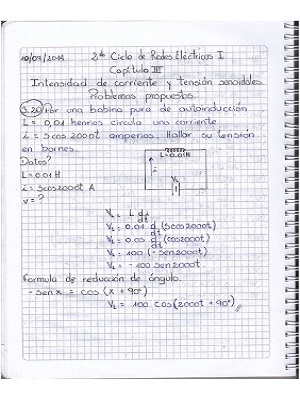 10/07/2014 2do Ciclo de Redes Eléctricas I
Capítulo III
Intensidad de corriente y tensión senoidales.
Problemas propuestos.
3.20 Por una bobina pura de autoinducción
L = 0,01 henrios circula una corriente
i = 5 cos 2000t amperios. Hallar su tensión
en bornes.
Datos?
L=0.01H
L=0.01H
i
i = 5cos2000t A
VL
v = ?
VL = L di/dt
VL = 0.01 d/dt (5cos2000t)
VL = 0.05 d/dt (cos2000t)
VL = 100 (-sen2000t)
VL = -100 sen2000t.
Formula de reducción de ángulo.
- sen x = cos (x + 90°)
VL = 100 cos(2000t + 90°)